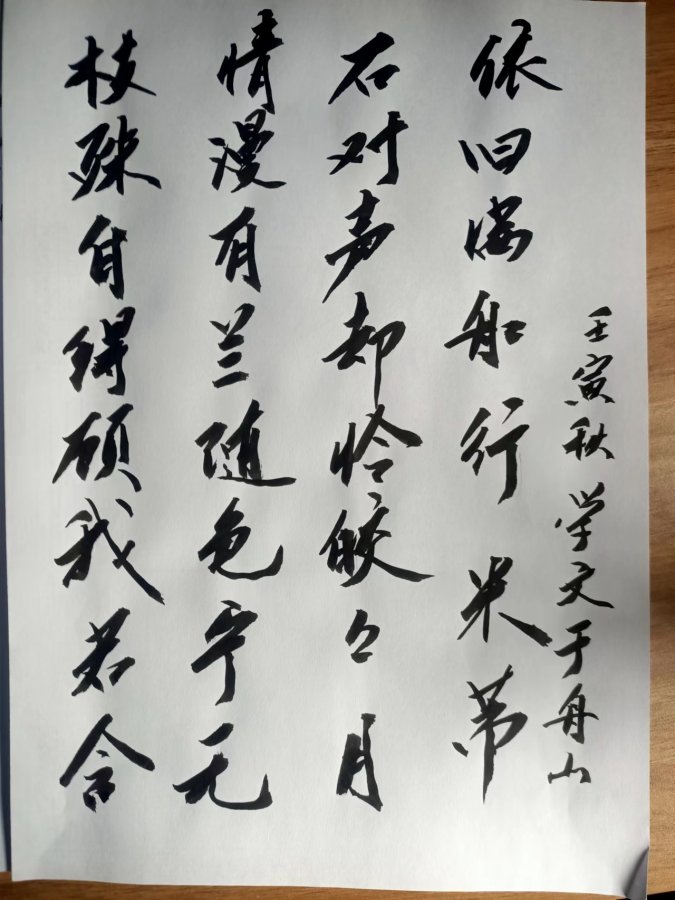 枝殊自得顾我若含
情漫有兰随色宁无
石对声却怜皎々月
依旧满船行 米芾
壬寅秋 学文于舟山